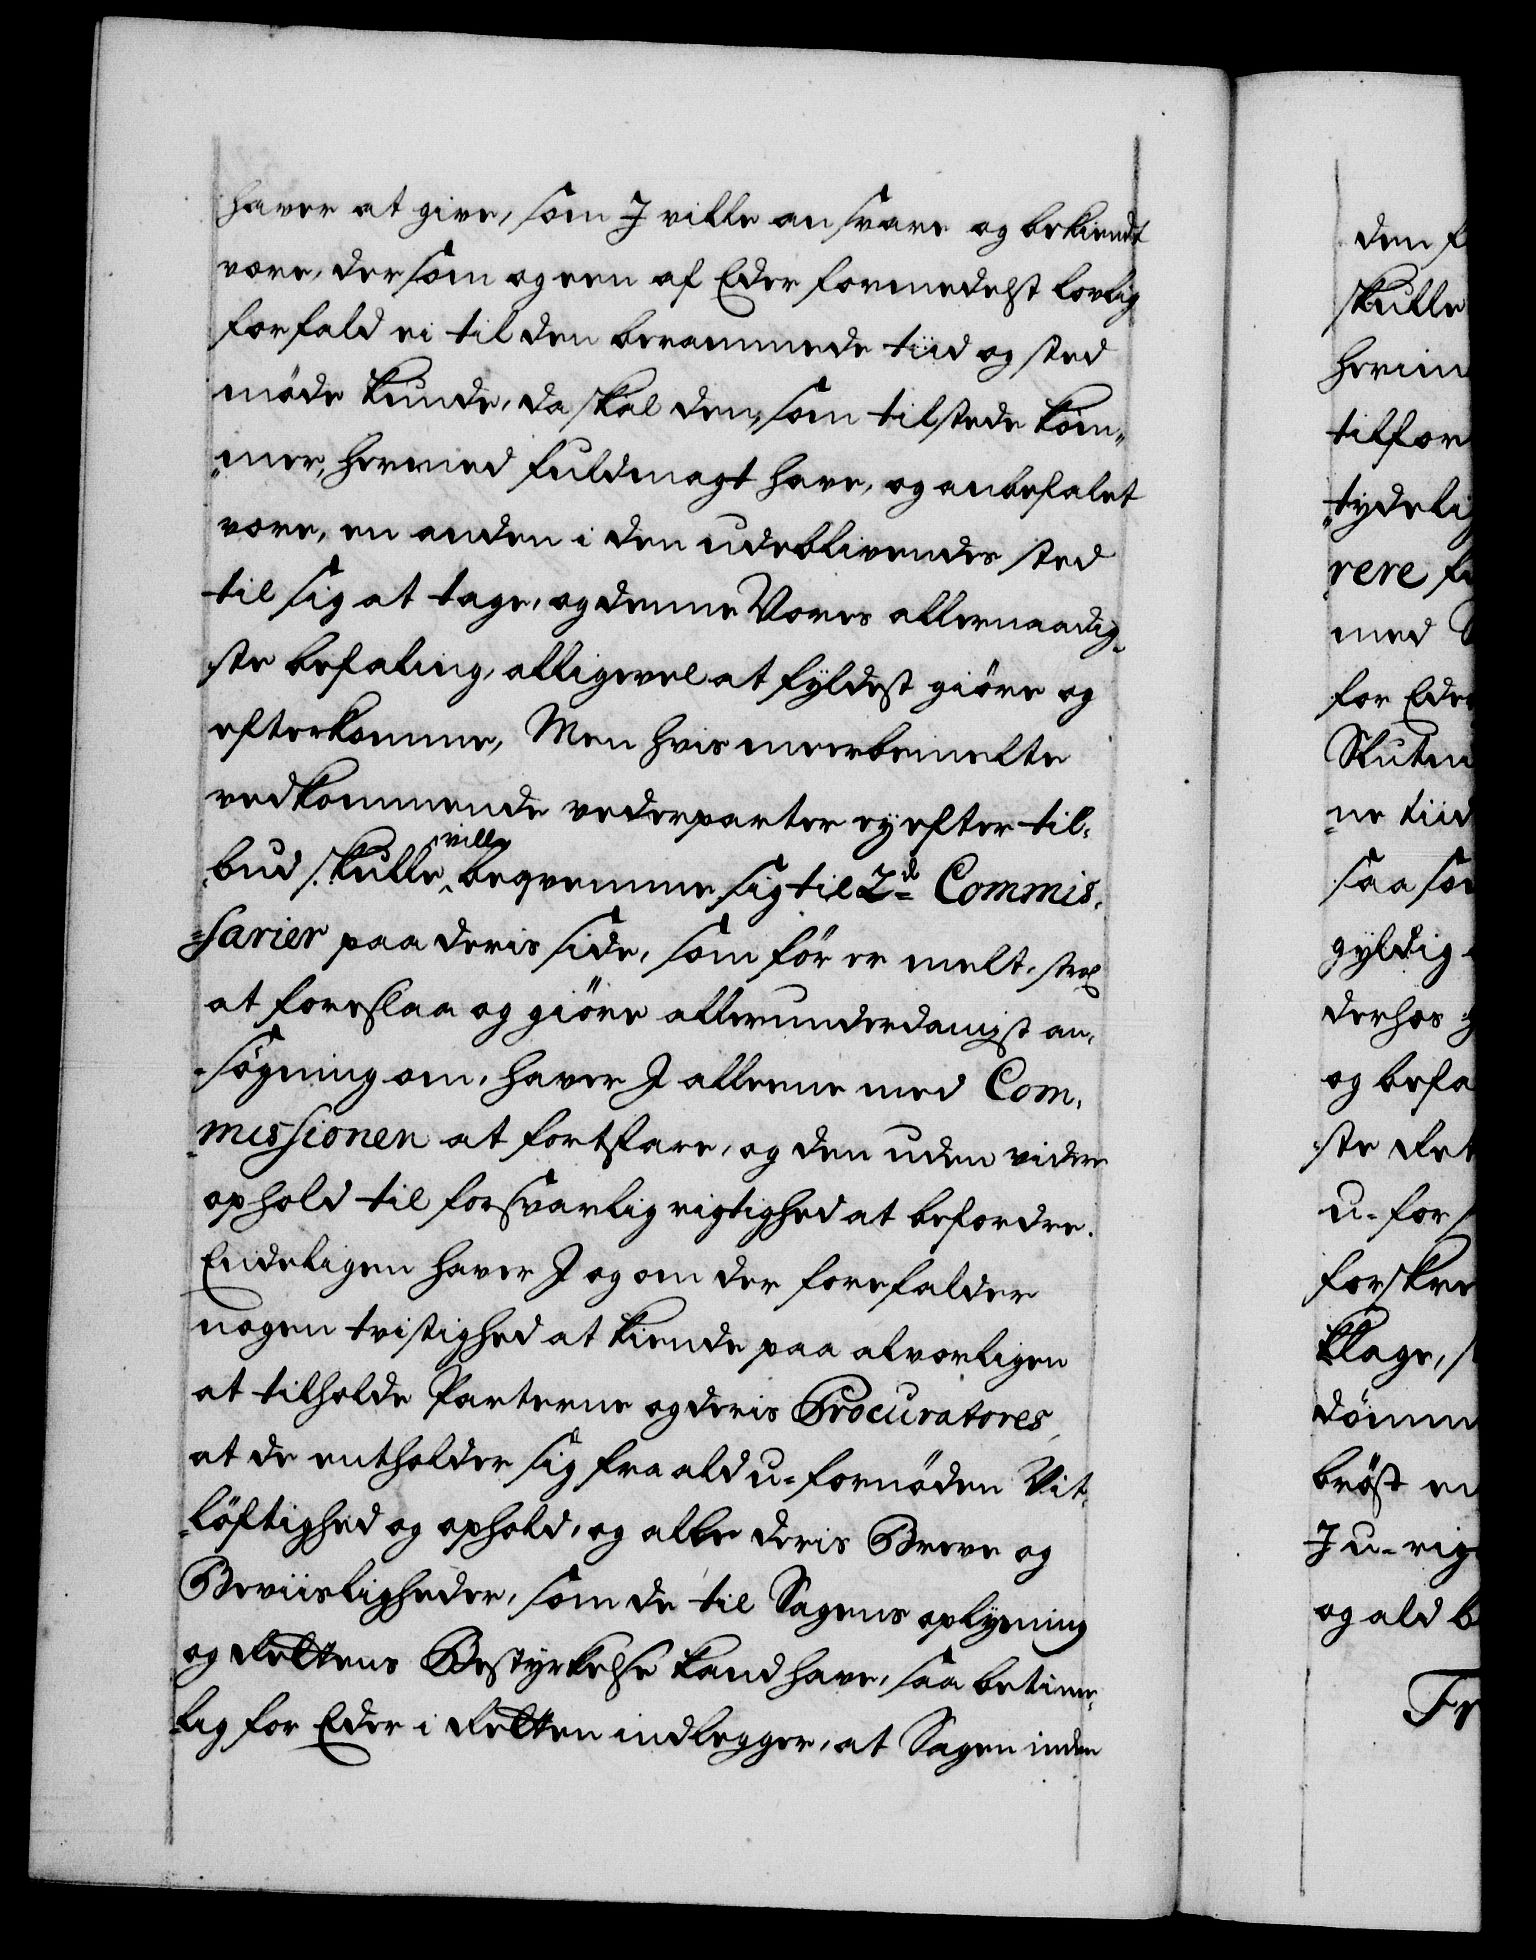 haver at give, som I ville ansvare og bekiendt
være, dersom og een af Eder formedelst lovlig
forfald ei til den berammede tiid og sted
møde kunde, da skal den, som tilstede kom-
mer, hermed fuldmagt have, og anbefalet
være, en anden i den udeblivendes sted
til sig at tage, og denne Vores allernaadig-
ste befaling, alligevel at fyldest giøre og
efterkomme, Men hvis meerbemelte
vedkommende vederparter ey efter til-
bud skulle ville beqvemme sig til 2de Commis-
sarier paa deris side, som før er melt, strax
at foreslaa og giøre allerunderdanigst an-
søgning om, haver I alleene med Com-
missionen at fortfare, og den uden videre
ophold til forsvarlig rigtighed at befordre.
Endeligen haver I og om der forefalder
nogen tvistighed at kiende paa alvorligen
at tilholde Parterne og deris Procuratores,
at de entholder sig fra ald u-fornøden Vit-
løftighed og ophold, og alle deris Breve og
Beviisligheder, som de til Sagens oplysning
og Rettens Bestyrkelse kand have, saa betime-
lig for Eder i Retten indlegger, at Sagen inden
den
skulle
tilfor
tydelig
rere
med
for Eder
ne tiid
saa
gyldig
derhos
og befa
ste Ret
u-for
forskre
klage,
dømm
brøst
I u-rig
og ald
Fr